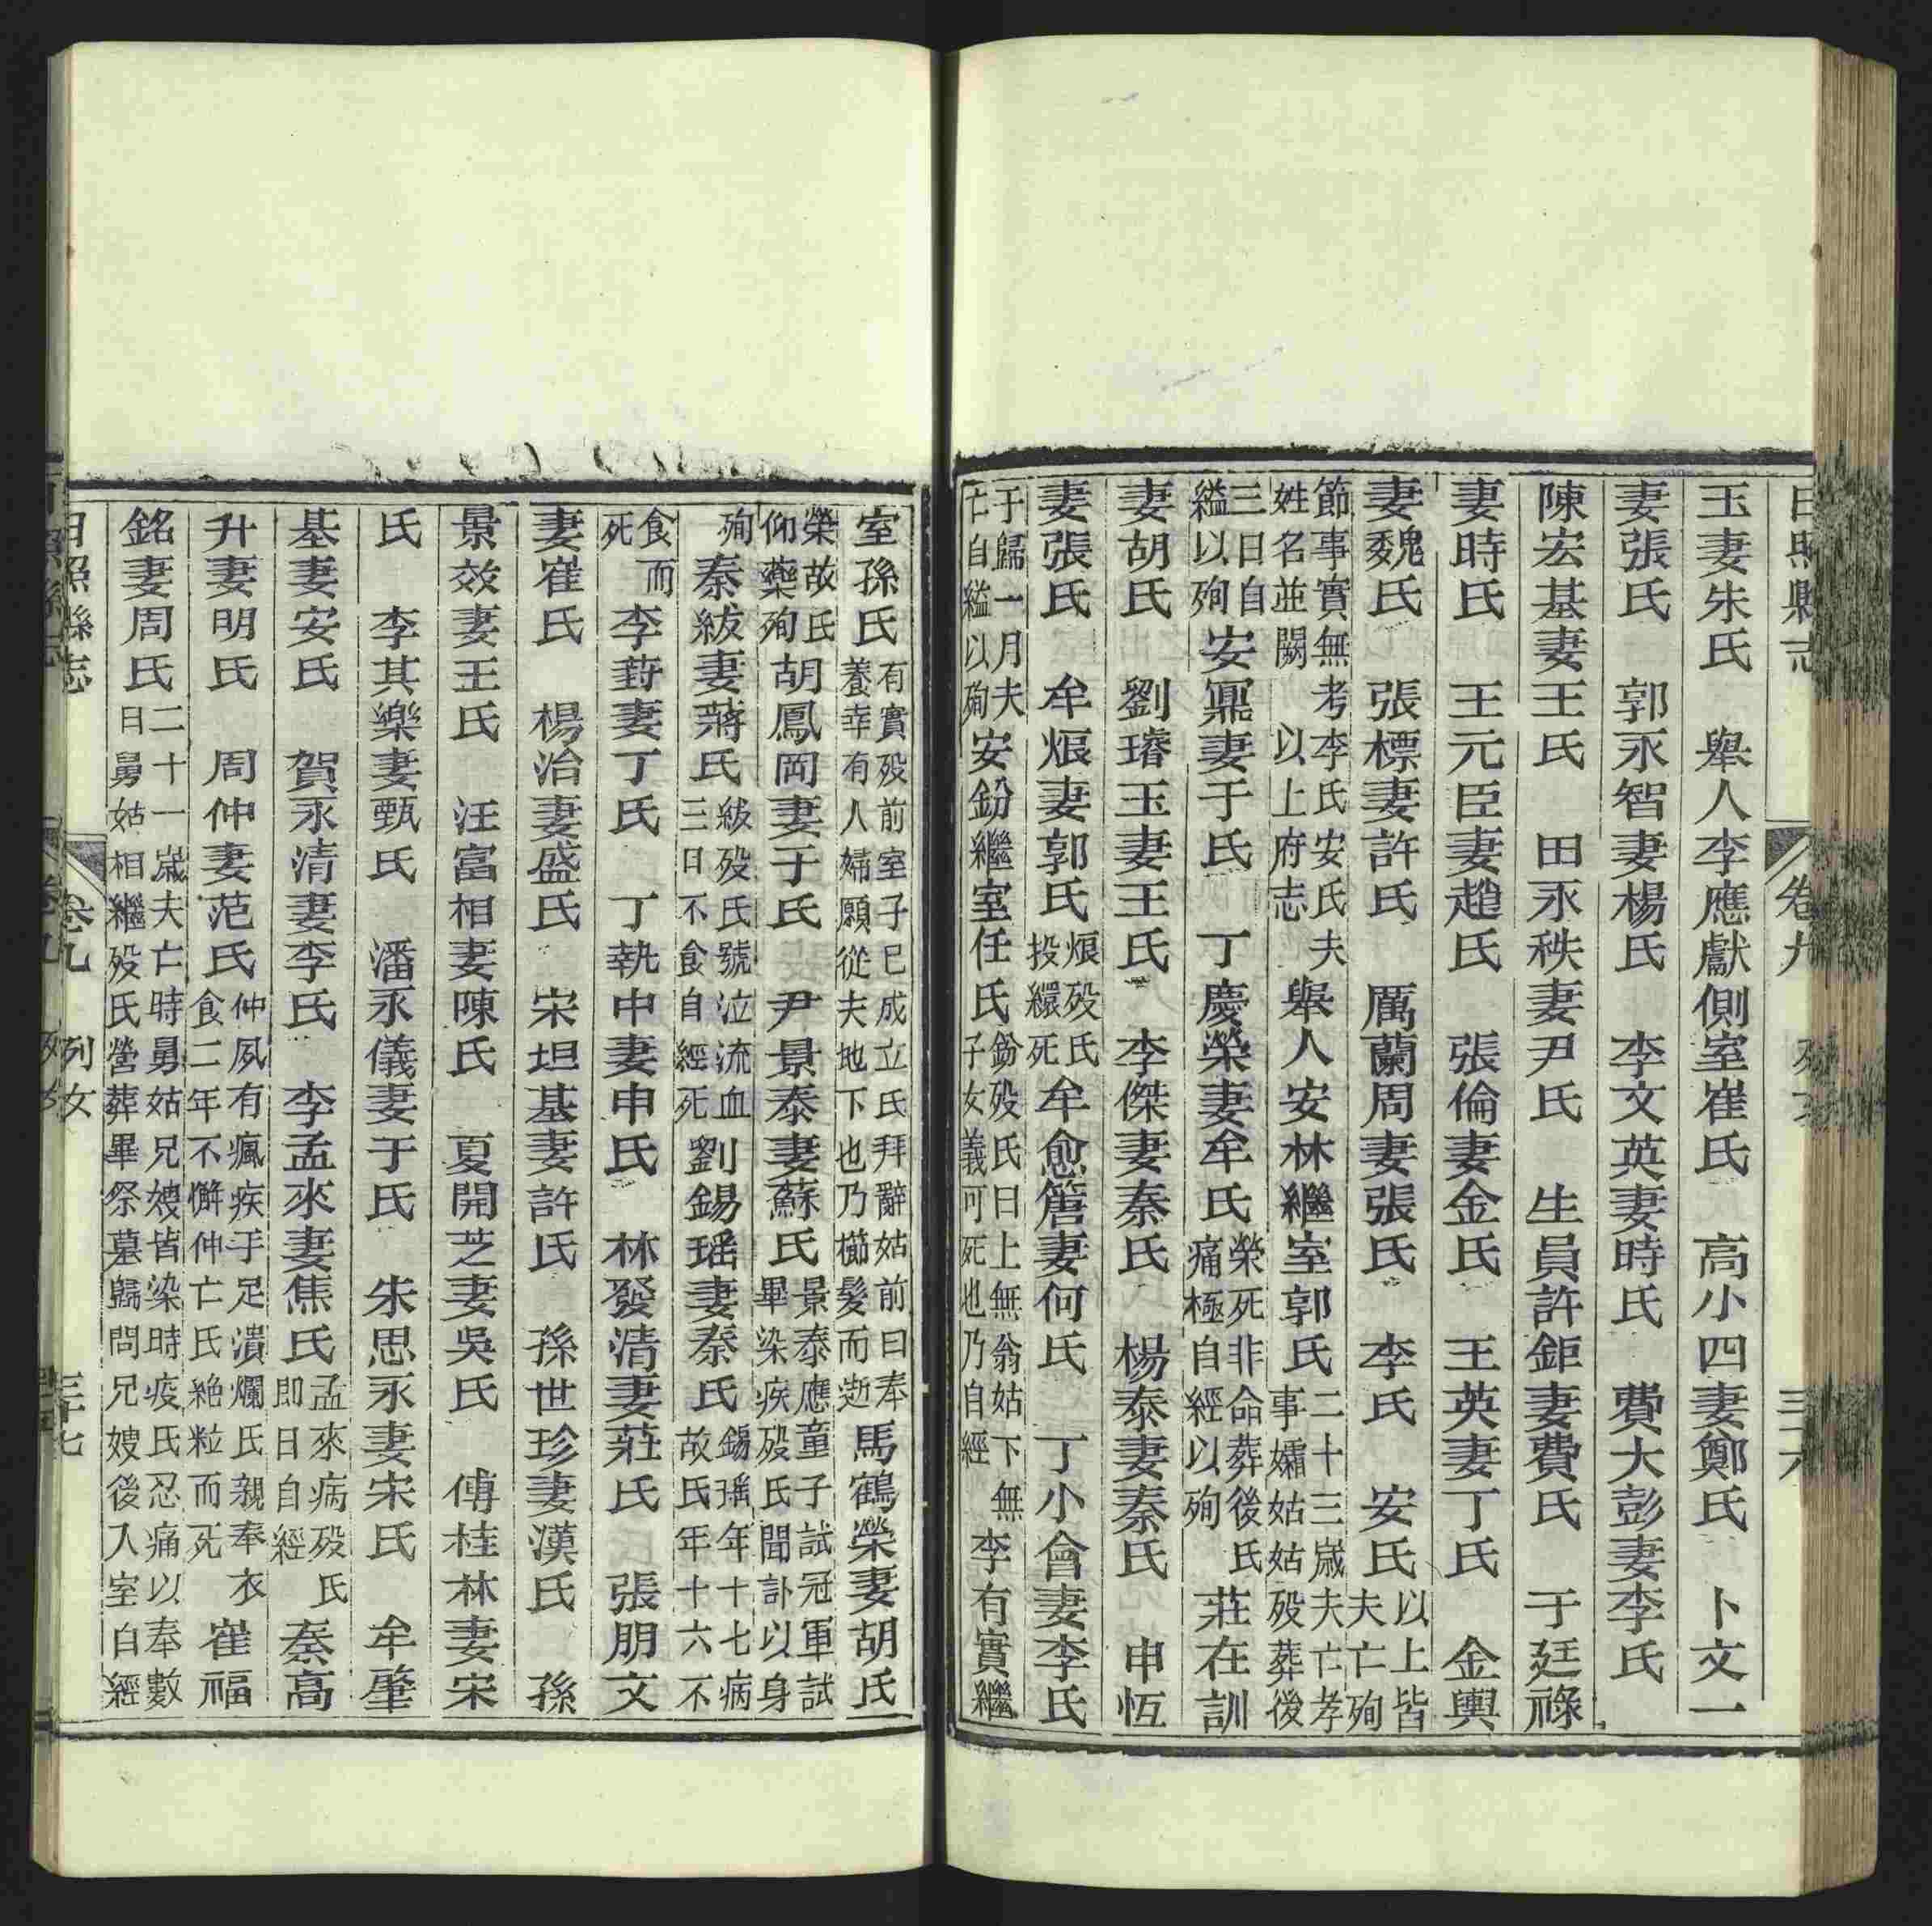 日照縣志 卷九 列女 三十六
玉妻朱氏 舉人李應獻側室崔氏 高小四妻鄭氏 卜文一
妻張氏 郭永智妻楊氏 李文英妻時氏 費大彭妻李氏
陳宏基妻王氏 田永秩妻尹氏 生員許鉅妻費氏 于廷祿
妻時氏 王元臣妻趙氏 張倫妻金氏 王英妻丁氏 金輿
妻魏氏 張標妻許氏 厲蘭周妻張氏 李氏 安氏 以上皆夫亡殉
節事實無考李氏安氏夫姓名並闕以上府志 舉人安林繼室郭氏 二十三歲夫亡孝事孀姑姑歿葬後
三日自縊以殉 安鼐妻于氏 丁慶榮妻牟氏 榮死非命葬後氏痛極自經以殉 莊在訓
妻胡氏 劉璿玉妻王氏 李傑妻秦氏 楊泰妻秦氏 申恆
妻張氏 牟烺妻郭氏 烺歿氏投繯死 牟愈簷妻何氏 丁小會妻李氏
于歸一月夫亡自縊以殉 安鈖繼室任氏 鈖歿氏曰上無翁姑下無子女義可死也乃自經 李有實繼
室孫氏 有實歿前室子已成立氏拜辭姑前曰奉養幸有人婦願從夫地下也乃櫛髮而逝 馬鶴榮妻胡氏
榮故氏仰藥殉 胡鳳岡妻于氏 尹景泰妻蘇氏 景泰應童子試冠軍試畢染疾歿氏聞訃以身
殉 秦紱妻蔣氏 紱歿氏號泣流血三日不食自經死 劉錫瑶妻秦氏 錫瑤年十七病故氏年十六不
食而死 李葑妻丁氏 丁執中妻申氏 林發清妻莊氏 張朋文
妻崔氏 楊治妻盛氏 宋坦基妻許氏 孫世珍妻漢氏 孫
景效妻王氏 汪富相妻陳氏 夏開芝妻吳氏 傅桂林妻宋
氏 李其樂妻甄氏 潘永儀妻于氏 朱思永妻宋氏 牟肇
基妻安氏 賀永清妻李氏 李孟來妻焦氏 孟來病歿氏即日自經 秦高
升妻明氏 周仲妻范氏 仲夙有瘋疾手足潰爛氏親奉衣食二年不懈仲亡氏絕粒而死 崔福
銘妻周氏 二十一歲夫亡時舅姑兄嫂皆染時疫氏忍痛以奉數日舅姑相繼歿氏營葬畢祭墓歸問兄嫂後入室自經
日照縣志 卷九 列女 三十七